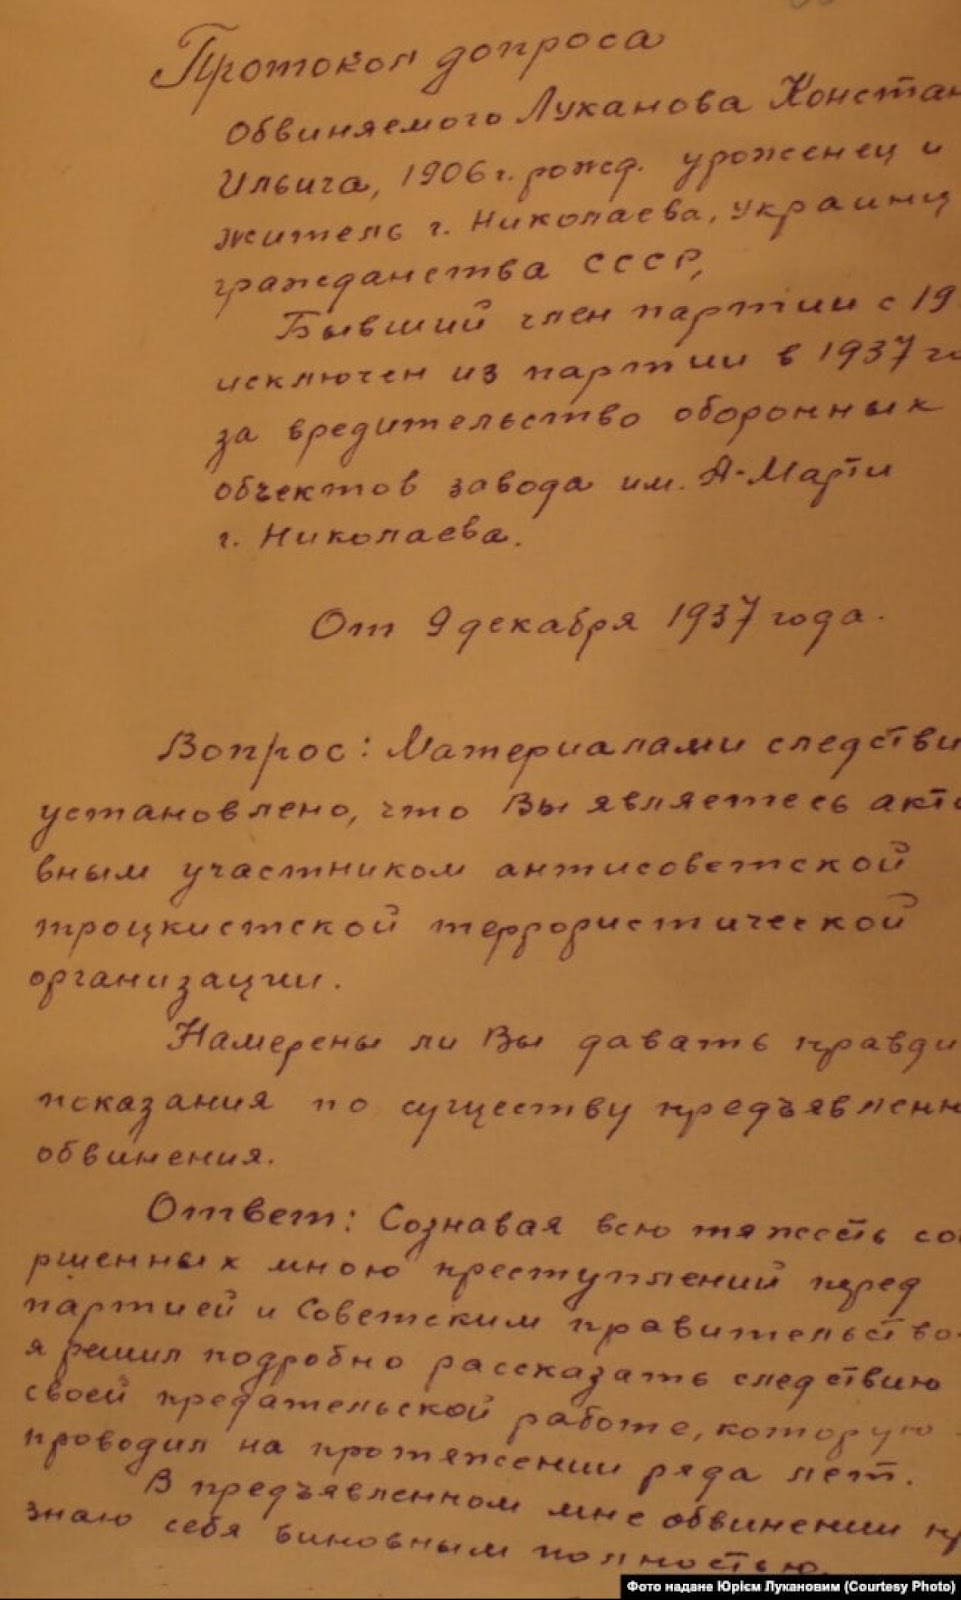 Протокол допроса
Обвиняемого Луканова Констан
Ильича, 1906 г. рожд. уроженец и
житель г. Николаева, украинц
гражданства СССР,
Бывший член партии с 19
исключен из партии в 1937 го
за вредительство оборонных
объектов завода им. А-Марти
г. Николаева.
От 9 декабря 1937 года.
Вопрос: Материалами следстви
установлено, что Вы являетесь акти
вным участником антисоветской
троцкистской террористической
организации.
Намерены ли Вы давать правди
показания по существу предъявленн
обвинения.
Ответ: Сознавая всю тяжесть сов
ршенных мною преступлений перед
партией и Советским правительство
я решил подробно рассказать следствию
своей предательской работе, которую
проводил на протяжении ряда лет.
В предъявленном мне обвинении пр
знаю себя виновным полностью.
Фото надане Юрієм Лукановим (Courtesy Photo)